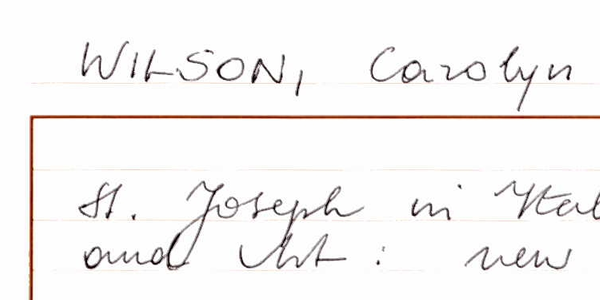 WILSON, Carolyn
St. Joseph in Ital
and Art : new